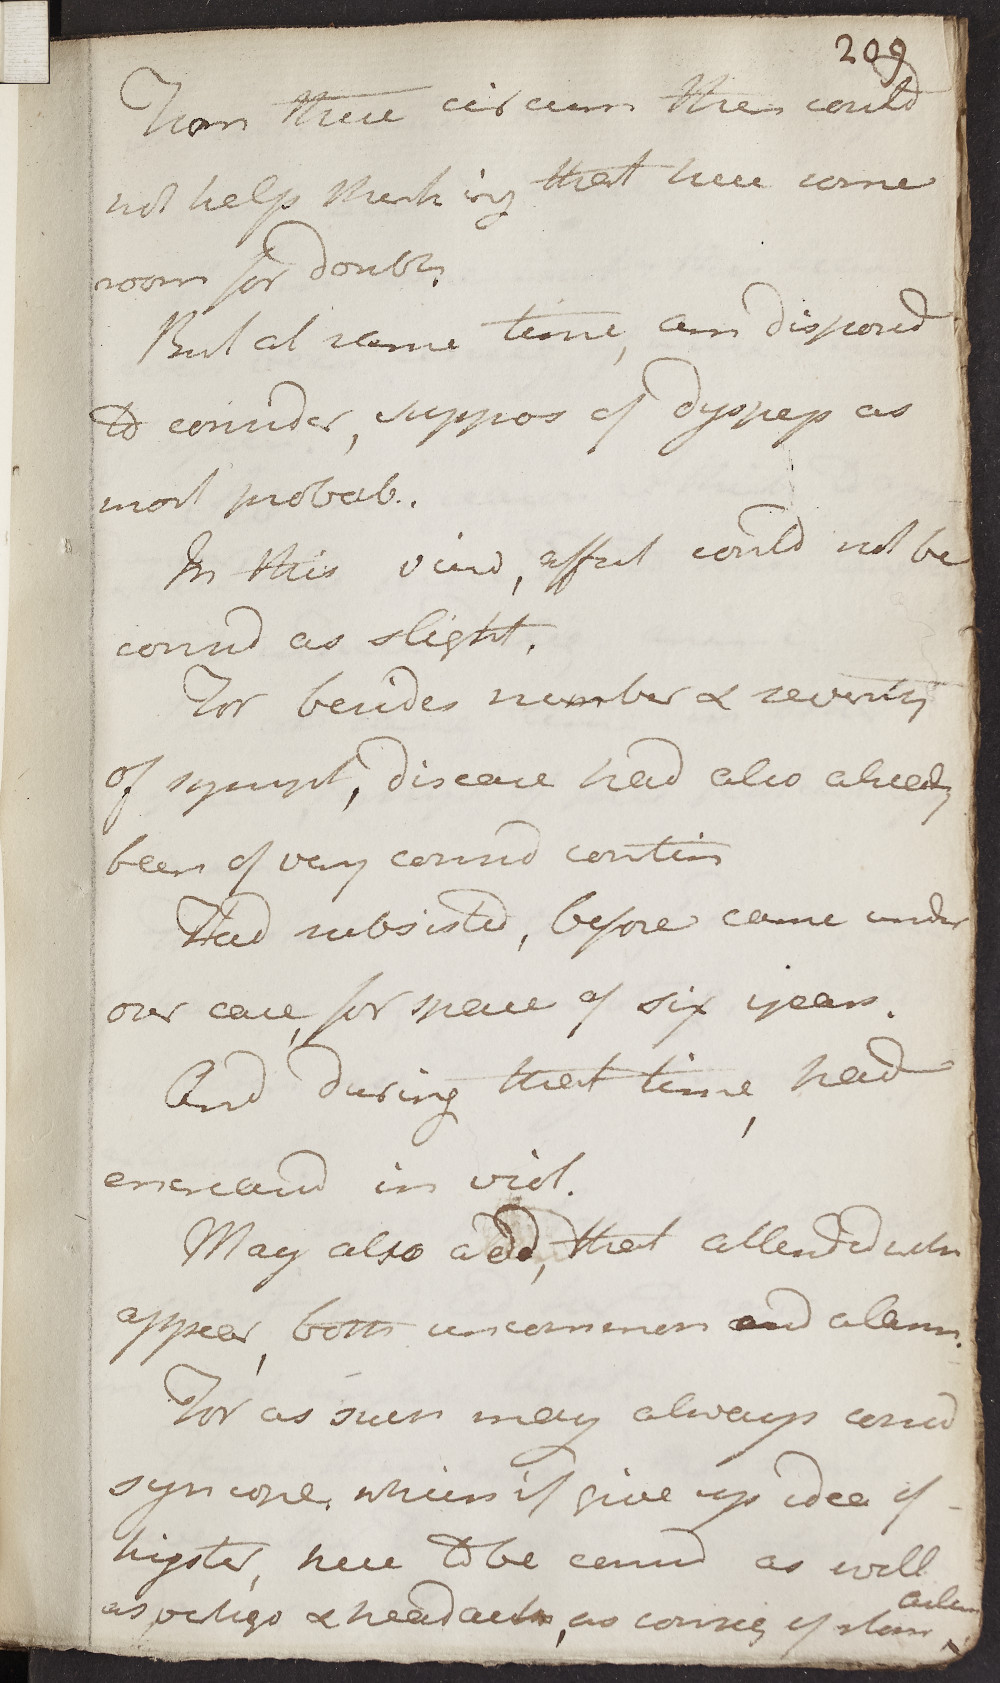 209
From these circum then could
not help thinking that here some
room for doubt.
But at same time, am disposed
to consider, suppos of dyspep as
most probab.
In this view, affect could not be
consid as slight.
For besides number & severity
of sympt, disease had also already
been of very consid contin
Had subsisted, before came under
our care, for space of six years.
And during that time, had
encreasd in viol.
May also add, that attended with
appear, both uncommon and alarm.
For as such may always consid
syncope, which if give up idea of
hyster, here to be consid as well
as vertigo & headach, as conseq of stom